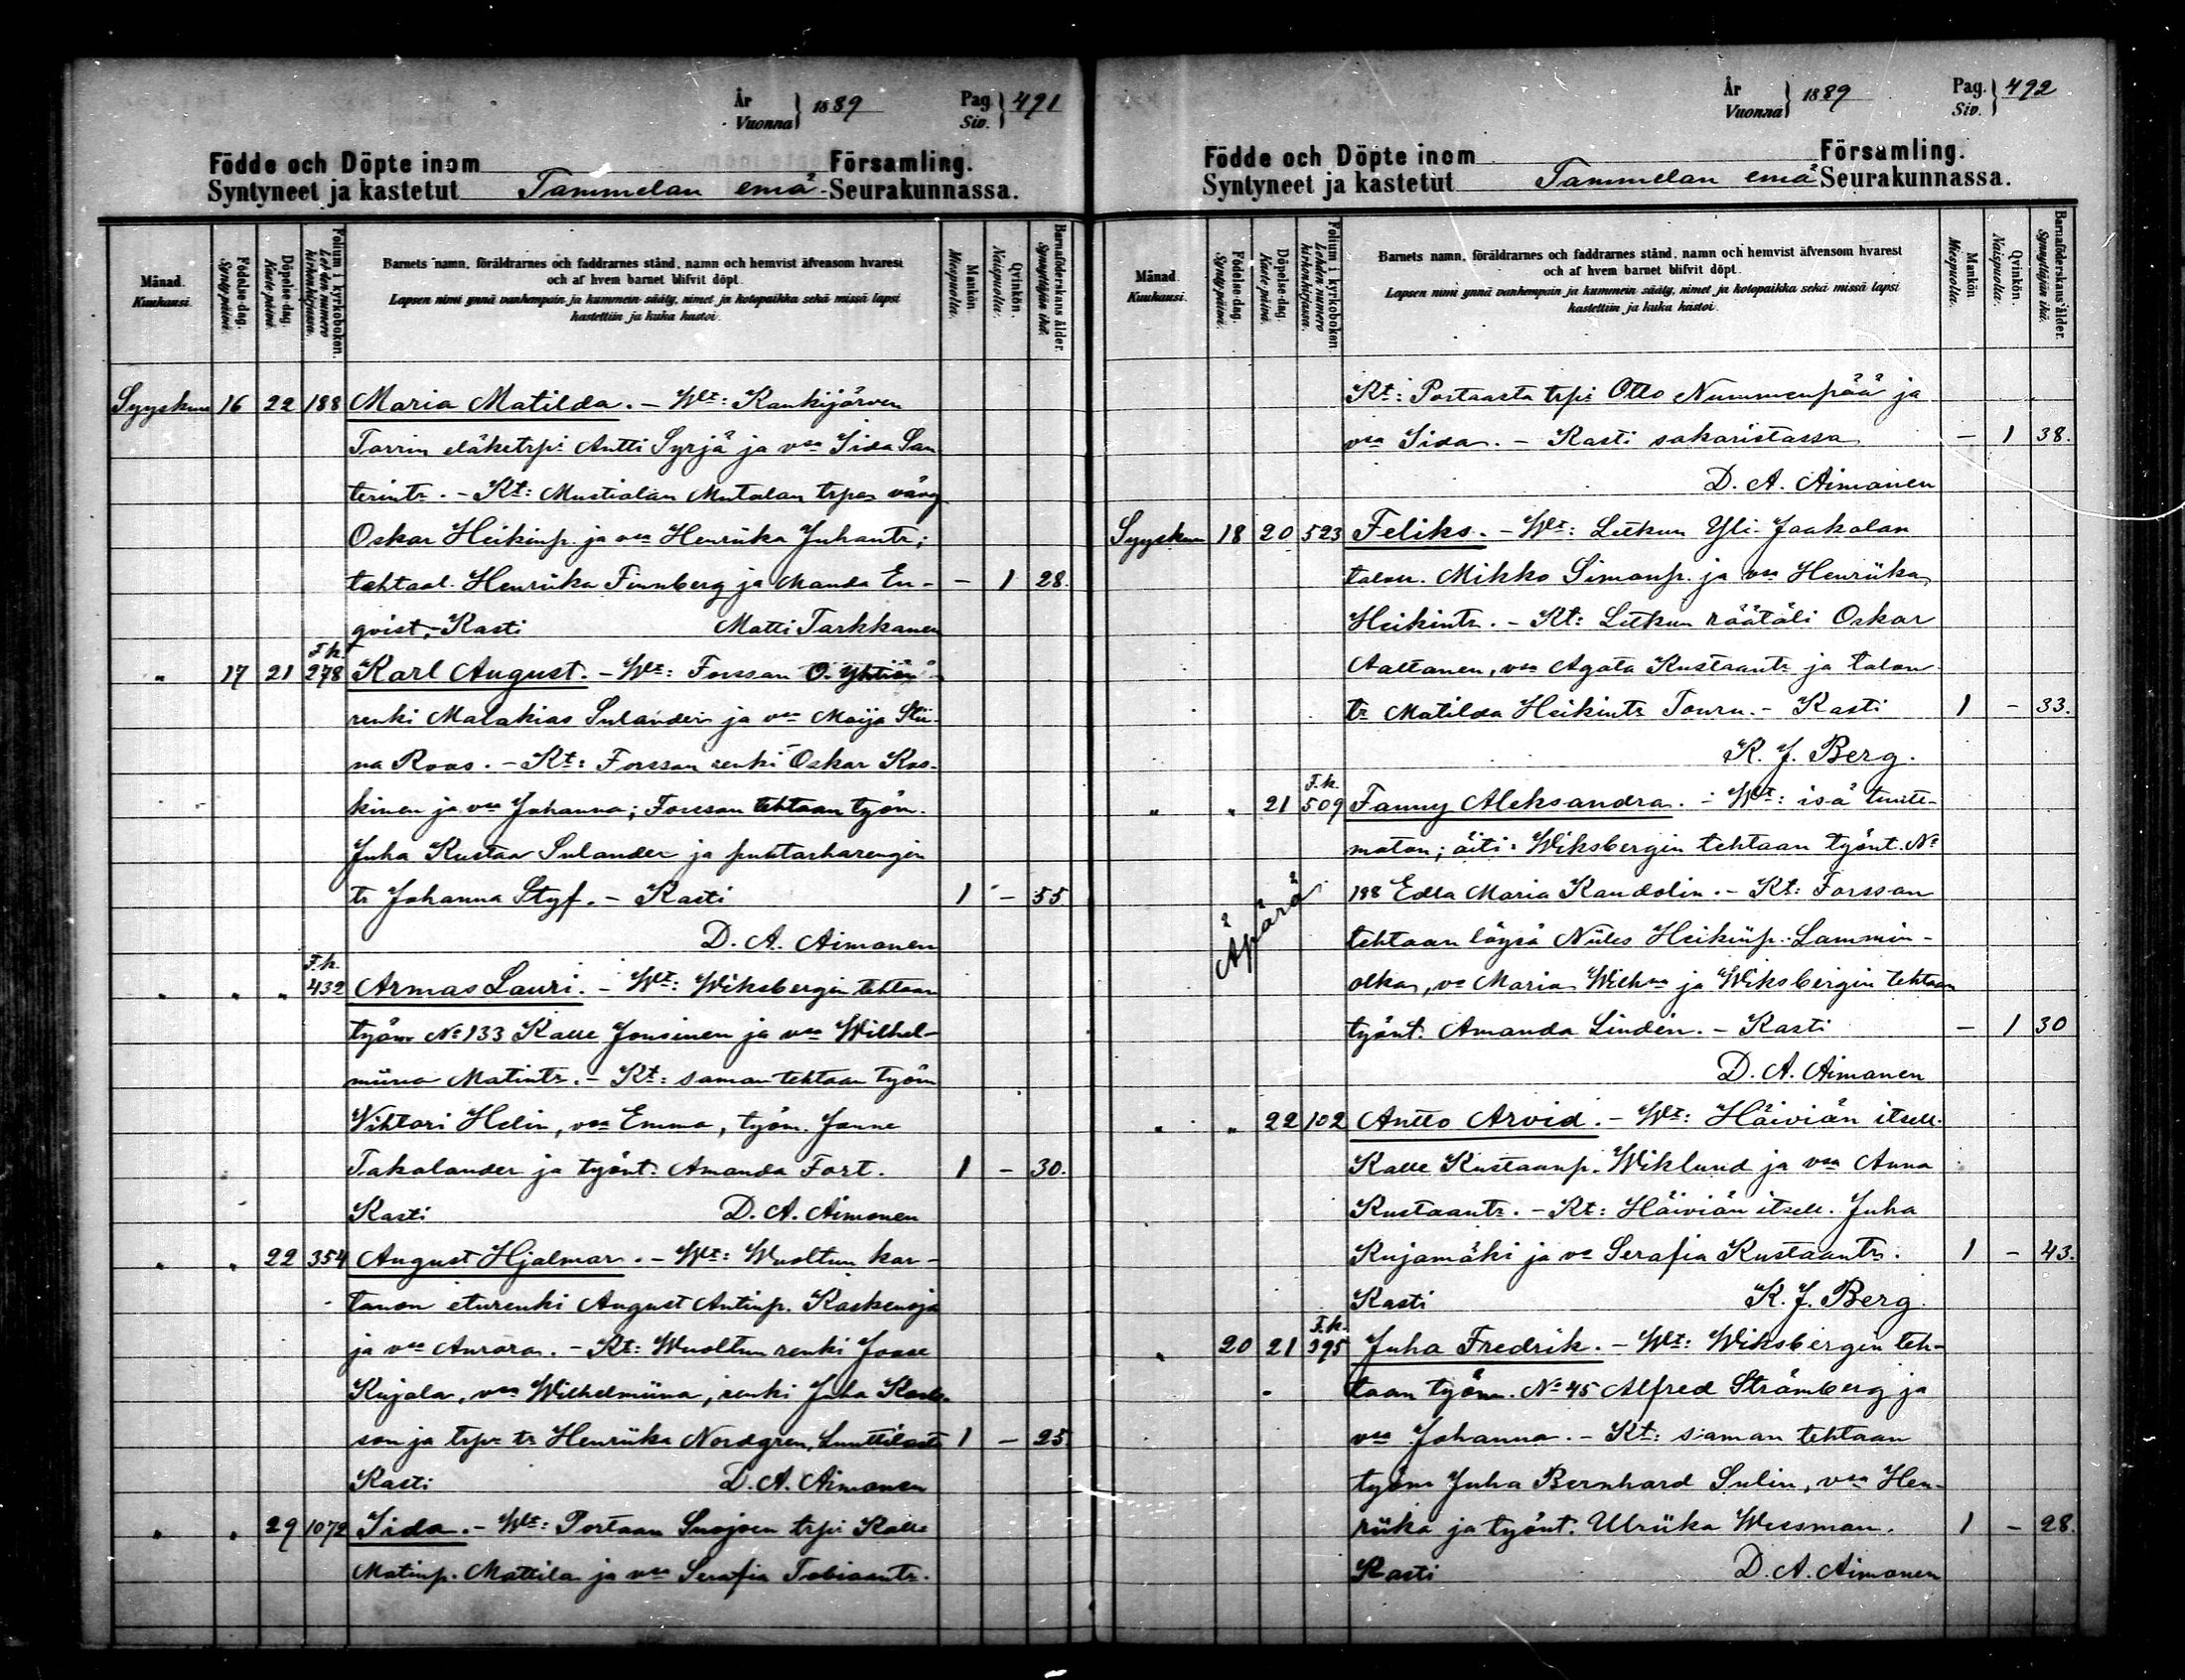 År
Vuonna } 1889 Pag. Siv. } 491
Födde och Döpte inom Församling.
Syntyneet ja kastetut Tammelan emä Seurakunnassa.
Månad. Kuukausi.
Födelse-dag. Synty päivä.
Döpelse-dag. Kaste päivä.
Folium i kyrkoboken. Lehden numero kirkonkirjassa.
Barnets namn, föräldrarnes och faddrarnes stånd, namn och hemvist äfvensom hvarest
och af hvem barnet blifvit döpt.
Lapsen nimi ynnä vanhempain ja kummein sääty, nimet ja kotopaikka sekä missä lapsi
kastettiin ja kuka kastoi.
Mankön. Miespuolia.
Qvinkön. Naispuolia.
Barnaföderskans ålder. Synnyttäjän ikä.
Syyskuu 16 22 188 Maria Matilda. – Wt: Kaukijärven
Torrin eläketrp: Antti Syrjä ja vsa Iida San
terintr. – Kt: Mustialan Mutalan trpn vävy
Oskar Heikinp. ja vsa Henriika Juhantr;
tehtaal. Henriika Finnberg ja Manda En- – 1 28.
qvist. – Kasti Matti Tarkkanen
" 17 21 F.k. 278 Karl August. – Wt: Forssan O. Yhtiön
renki Malakias Sulander ja vsa Maija Stii-
na Roos. – Kt: Forssan renki Oskar Kos-
kinen ja vsa Johanna; Forssan tehtaan työm.
Juha Kustaa Sulander ja puutarharengin
tr Johanna Styf. – Kasti 1 – 55
D. A. Aimonen
" " " F.k. 432 Armas Lauri. – Wt: Wiksbergin tehtaan
työm No 133 Kalle Jonsinen ja vsa Wilhel-
miina Matintr. – Kt: saman tehtaan työm
Vihtori Helin, vsa Emma, työm. Janne
Takalander ja työnt. Amanda Fort. 1 – 30.
Kasti D. A. Aimonen
" " 22 354 August Hjalmar. – Wt: Wuoltun kar-
tanon eturenki August Antinp. Koskenoja
ja vsa Aurora. – Kt: Wuoltun renki Joose
Kujala, vsa Wilhelmiina, renki Juha Karls-
son ja trp: tr Henriika Nordgren, Luuttilasta 1 – 25
Kasti D. A. Aimonen
" " 29 1072 Iida. – Wt: Portaan Suojoen trp: Kalle
Matinp. Mattila ja vsa Serafia Tobiaantr.
År
Vuonna } 1889 Pag. Siv. } 492
Födde och Döpte inom Församling.
Syntyneet ja kastetut Tammelan emä Seurakunnassa.
Månad. Kuukausi.
Födelse-dag. Synty päivä.
Döpelse-dag. Kaste päivä.
Folium i kyrkoboken. Lehden numero kirkonkirjassa.
Barnets namn, föräldrarnes och faddrarnes stånd, namn och hemvist äfvensom hvarest
och af hvem barnet blifvit döpt.
Lapsen nimi ynnä vanhempain ja kummein sääty, nimet ja kotopaikka sekä missä lapsi
kastettiin ja kuka kastoi.
Mankön. Miespuolia.
Qvinkön. Naispuolia.
Barnaföderskans ålder. Synnyttäjän ikä.
Kt: Portaasta trp: Otto Nummenpää ja
vsa Iida. – Kasti sakaristassa – 1 38.
D. A. Aimonen
Syyskuu 18 20 523 Feliks. – Wt: Letkun Yli-Jaakolan
talon. Mikko Simonp. ja vsa Henriika
Heikintr. – Kt: Letkun räätäli Oskar
Aaltonen, vsa Agata Kustaantr ja talon
tr Matilda Heikintr Touru. – Kasti 1 – 33.
K. J. Berg.
" " 21 F.k. 509 Fanny Aleksandra. – Wt: isä tunte-
maton; äiti: Wiksbergin tehtaan työnt. No
Äpärä 188 Edla Maria Kandolin. – Kt: Forssan
tehtaan löysä Niiles Heikinp. Lammin-
olka, va Maria Wilh:na ja Wiksbergin tehtaan
työnt. Amanda Lindén. – Kasti – 1 30
D. A. Aimonen
" " 22 102 Antto Arvid. – Wt: Häiviän itsell.
Kalle Kustaanp. Wiklund ja vsa Anna
Kustaantr. – Kt: Häiviän itsell. Juha
Kujamäki ja va Serafia Kustaantr. 1 – 43.
Kasti K. J. Berg.
" 20 21 F.k. 395 Juha Fredrik. – Wt: Wiksbergin teh-
taan työm. No 45 Alfred Strömberg ja
vsa Johanna. – Kt: saman tehtaan
työm Juha Bernhard Sulin, vsa Hen-
riika ja työnt. Ulriika Wessman. 1 – 28.
Kasti D. A. Aimonen